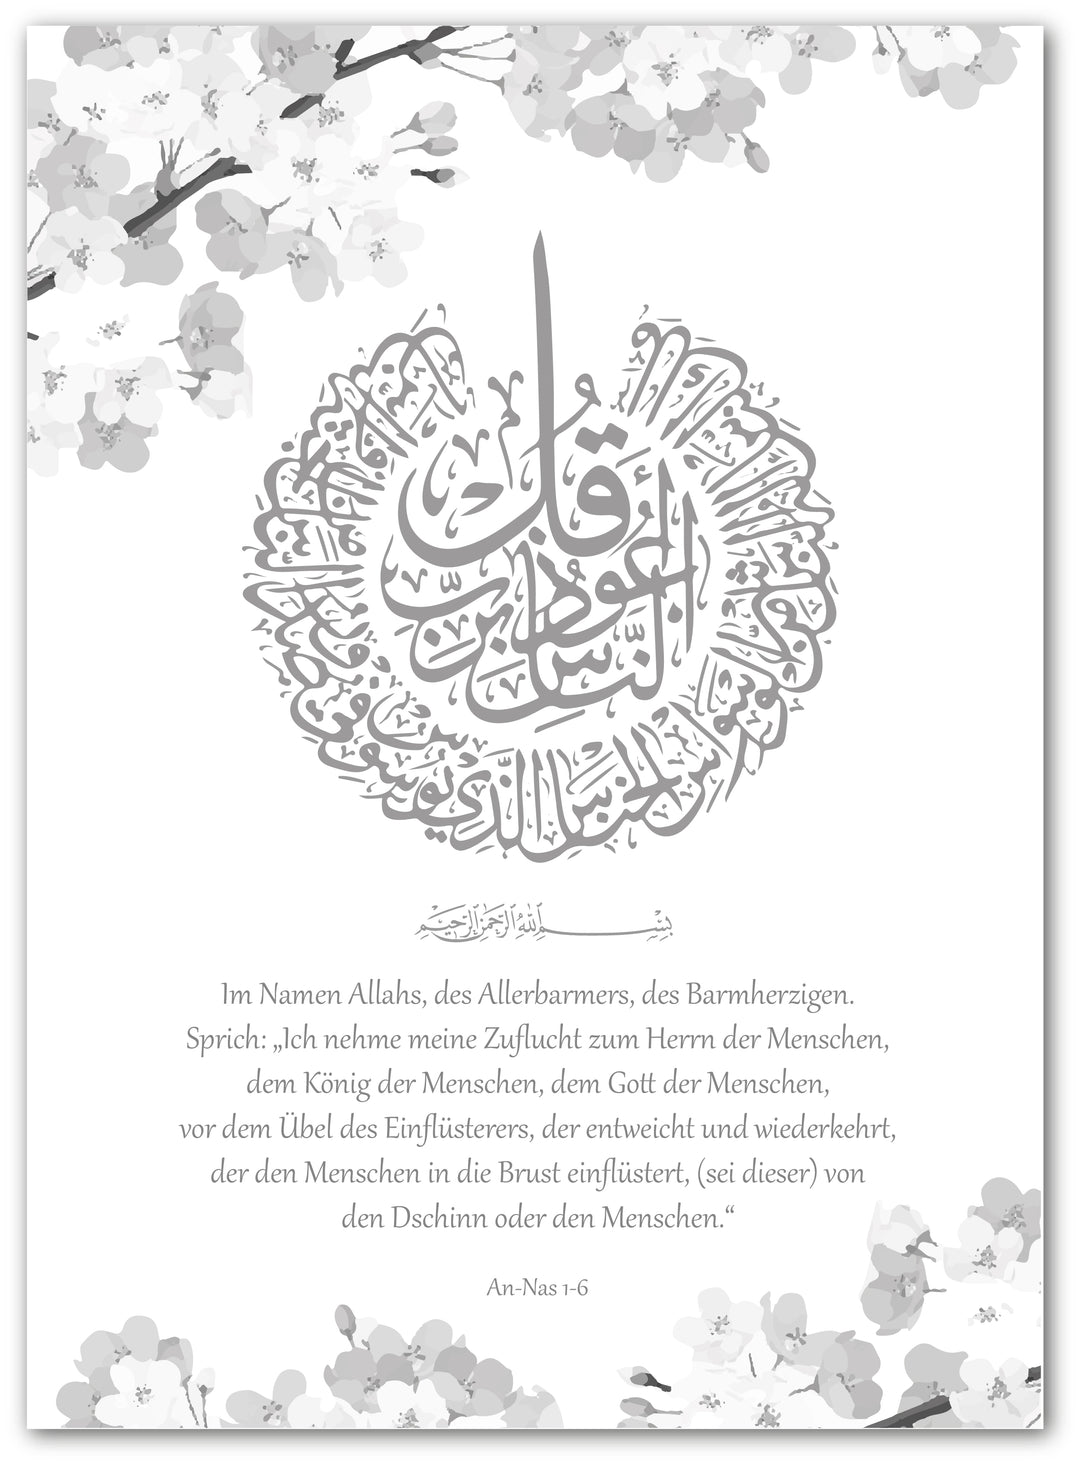 قُلْ أَعُوذُ بِرَبِّ النَّاسِ
مَلِكِ النَّاسِ إِلَٰهِ النَّاسِ مِن شَرِّ الْوَسْوَاسِ الْخَنَّاسِ الَّذِي يُوَسْوِسُ فِي صُدُورِ النَّاسِ مِنَ الْجِنَّةِ وَالنَّاسِ
بِسْمِ اللَّهِ الرَّحْمَٰنِ الرَّحِيمِ
Im Namen Allahs, des Allerbarmers, des Barmherzigen.
Sprich: „Ich nehme meine Zuflucht zum Herrn der Menschen,
dem König der Menschen, dem Gott der Menschen,
vor dem Übel des Einflüsterers, der entweicht und wiederkehrt,
der den Menschen in die Brust einflüstert, (sei dieser) von
den Dschinn oder den Menschen.“
An-Nas 1-6